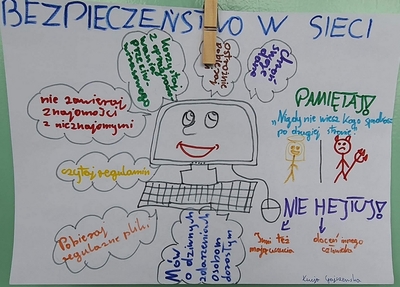 BEZPIECZEŃSTWO W SIECI
Korzystaj
z
ostrożnie
pobieraj
Chroń
swoje
dane
nie zawieraj
znajomości
z nieznajomymi
PAMIĘTAJ!
"Nigdy nie wiesz kogo spotkasz
po drugiej stronie"
czytaj regulamin
Pobieraj
regularne pliki
Mów
o dziwnych
zdarzeniach
osobom
dorosłym
NIE HEJTUJ!
Inni też
mają uczucia
doceń innego
człowieka